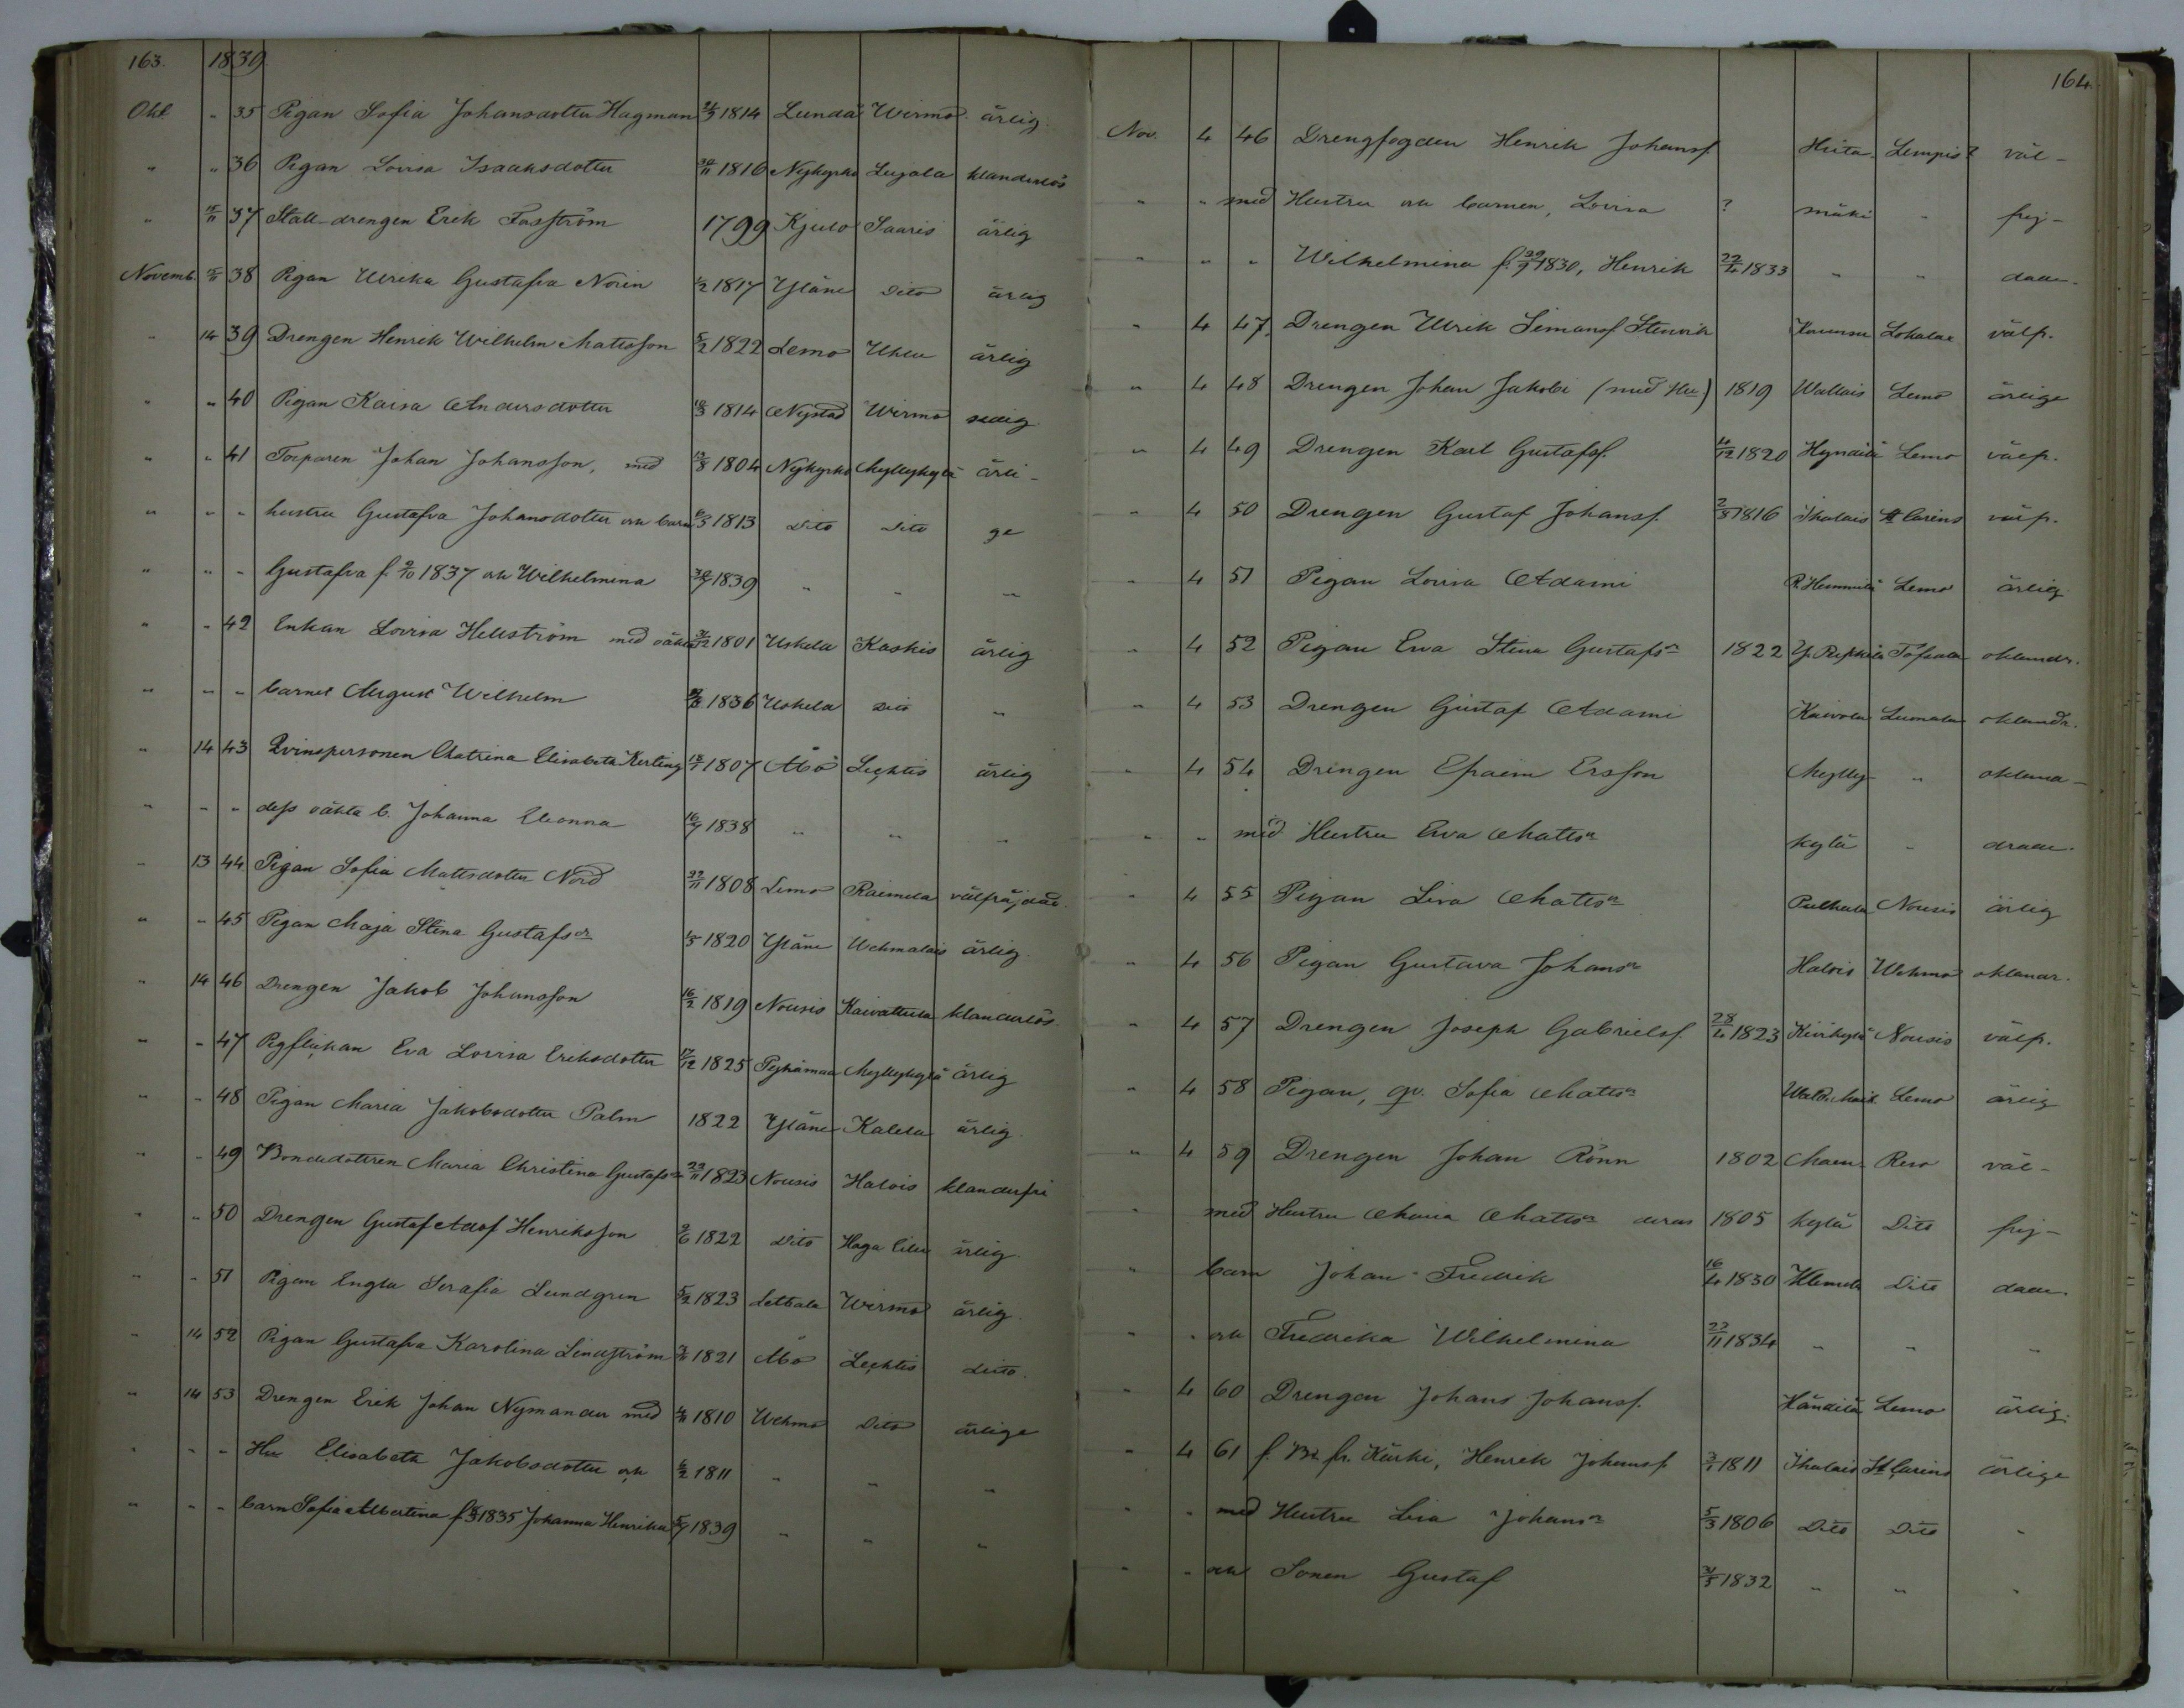 163. 1839.
Okt " 35 Pigan Sofia Johansdotter Hagman 21/3 1814 Lundä Wirmo ärlig.
" " 36 Pigan Lovisa Isaaksdotter 24/11 1816 Nykyrko klanderlös
" 15/11 37 Stall-drengen Erik Fasström 1799 Kjulo Saaris ärlig
Novemb. 38 Pigan Ulrika Gustafva Norin 1817 Yläne Dito ärlig
" 14 39 Drengen Henrik Wilhelm Matsson 5/2 1822 Lemo ärlig
" " 40 Pigan Kaisa Andersdotter 1814 Nystad Wirmo sedig
" " 41 Torparen Johan Johansson, med 1804 Nykyrko Myllykylä ärli-
" " " hustru Gustafva Johansdotter och barn 1813 Dito Dito ge
" " " Gustafva f. 9/10 1837 och Wilhelmina 30/7 1839 " " "
" " 42 Enkan Lovisa Hellström med oäkta 1801 Uskela Kaskis ärlig
" " " barnet August Wilhelm 1836 Uskela Dito "
" 14 43 Qvinspersonen Chatrina Elisabeta Kerting 1807 Åbo Lechtis ärlig
" " " dess oäkta b. Johanna Eleonna 16/7 1838 " " "
" 13 44 Pigan Sofia Mattsdotter Nord 22/11 1808 Lemo Raimela välfräjdad.
" " 45 Pigan Maja Stina Gustafsdr 1820 Yläne Wehmalais ärlig.
" 14 46 Drengen Jakob Johansson 16/2 1819 Nousis Kaivattula klanderlös.
" " 47 Pigflickan Eva Lovisa Eriksdotter 17/12 1825 Pyhämaa Myllykylä ärlig
" " 48 Pigan Maria Jakobsdotter Palm 1822 Yläne Kalela ärlig.
" " 49 Bondedottren Maria Christina Gustafsdr 23/11 1823 Nousis Halois klanderfri
" " 50 Drengen Gustaf Adof Henriksson 2/6 1822 Dito Haga ärlig.
" " 51 Pigan Engla Serafia Lundgren 5/2 1823 Letala Wirmo ärlig.
" 14 52 Pigan Gustafva Karolina Lindström 1821 Åbo Lechtis dito.
" 14 53 Drengen Erik Johan Nymander med 1810 Wehmo Dito ärlige
" " " Hu Elisabeth Jakobsdotter och 6/2 1811 " " "
" " " barn Sofia Albertina f. 1835 Johanna Henrika 5/7 1839 " " "
164.
Nov. 4 46 Drengfogden Henrik Johanss. Hiita- Lempis? väl-
" " med Hustru och barnen, Lovisa ? mäki " frej-
" " " Wilhelmina f. 29/9 1830, Henrik 22/4 1833 " " dade.
" 4 47. Drengen Ulrik Simonss. Stenvik Lokalax välf.
" 4 48 Drengen Johan Jakobi (med Hu) 1819 Wallais Lemo ärlige
" 4 49 Drengen Karl Gustafss. 1820 Hyndilä Lemo välf.
" 4 50 Drengen Gustaf Johanss. 2/8 1816 Ihalais St Carins välf.
" 4 51 Pigan Lovisa Adami P. Hemmilä Lemo ärlig
" 4 52 Pigan Eva Stina Gustafsdr 1822 oklandr.
" 4 53 Drengen Gustaf Adami Kaivola Lumala oklandr.
" 4 54 Drengen Efraim Ersson Mylly- " okland-
" " med Hustru Eva Mattsdr kylä " drade.
" 4 55 Pigan Lisa Mattsdr Pulkala Nousis ärlig
" 4 56 Pigan Gustava Johansdr Halois Wehmo oklandr.
" 4 57 Drengen Joseph Gabrielss. 28/4 1823 Kivikylä Nousis välf.
" 4 58 Pigan, qv. Sofia Mattsdr Lemo ärlig
" 4 59 Drengen Johan Rönn 1802 Maen- Reso väl-
" med Hustru Maria Mattsdr deras 1805 kylä Dito frej-
" barn Johan Fredrik 16/4 1830 Dito dade.
" " och Fredrika Wilhelmina 23/11 1834 " " "
" 4 60 Drengen Johans Johanss. Händilä Lemo ärlig.
" 4 61 f. Bd fr. Kärki, Henrik Johanss. 3/1 1811 Ihalais St Carins ärlige
" " med Hustru Lisa Johansdr 5/3 1806 Dito Dito "
" " och Sonen Gustaf 1832 " " "